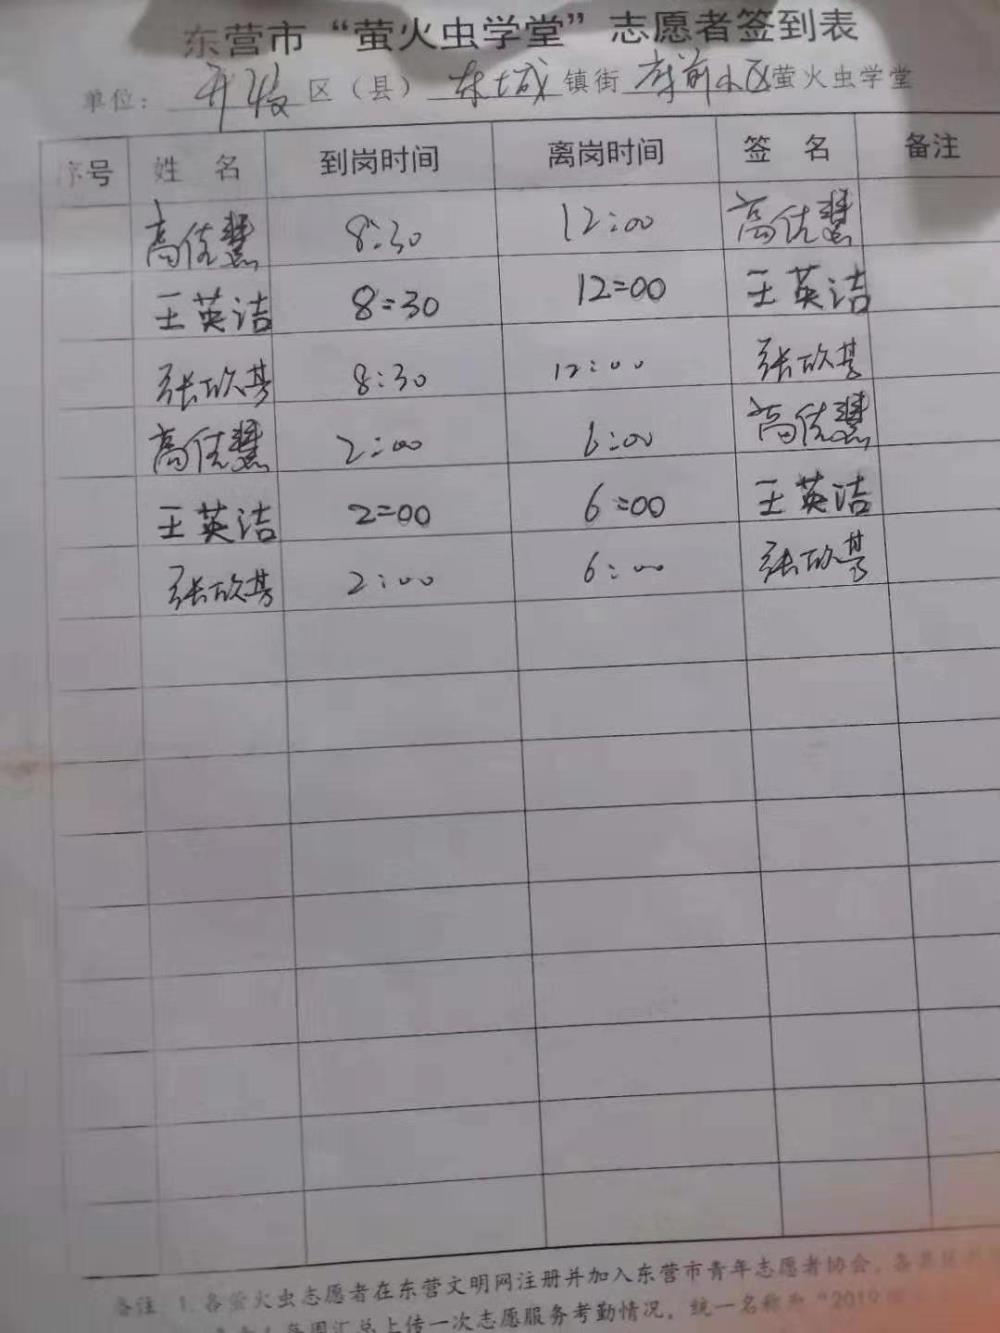 东营市“萤火虫学堂”志愿者签到表
单位：开发区（县）东城镇街府前小区萤火虫学堂
序号 姓 名 到岗时间 离岗时间 签 名 备注
高佳慧 8:30 12:00 高佳慧
王英洁 8:30 12:00 王英洁
张欣 8:30 12:00 张欣
高佳慧 2:00 6:00 高佳慧
王英洁 2:00 6:00 王英洁
张欣 2:00 6:00 张欣
备注 1.各萤火虫志愿者在东营文明网注册并加入东营市青年志愿者协会，各
每周汇总上传一次志愿服务考勤情况，统一名称为“2019